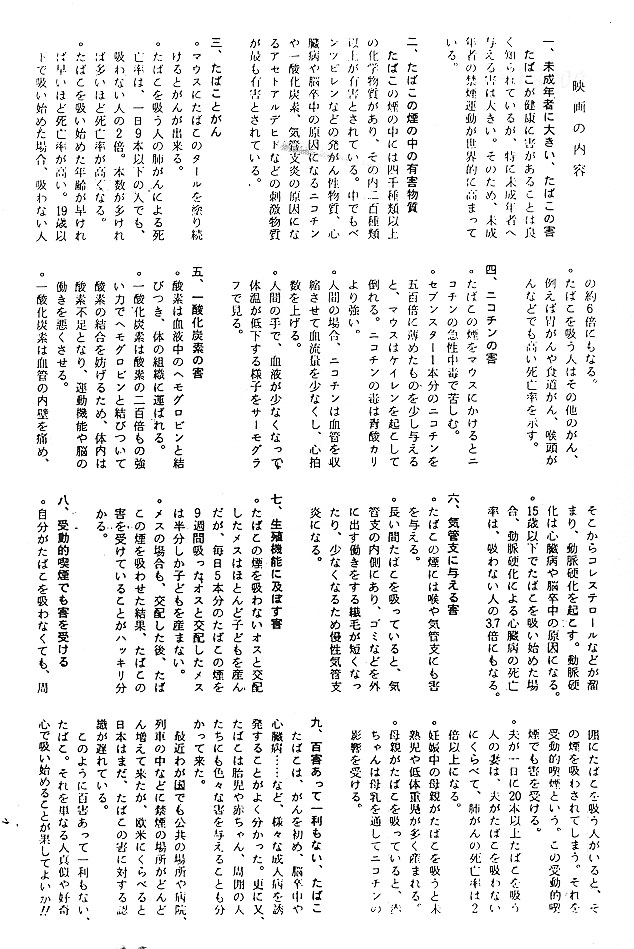 映画の内容
一、未成年者に大きい、たばこの害
たばこが健康に害があることは良
く知られているが、特に未成年者へ
与える害は大きい。そのため、未成
年者の禁煙運動が世界的に高まって
いる。
二、たばこの煙の中の有害物質
たばこの煙の中には四千種類以上
の化学物質があり、その内二百種類
以上が有害とされている。中でもベ
ンツピレンなどの発がん性物質、心
臓病や脳卒中の原因になるニコチン
や一酸化炭素、気管支炎の原因にな
るアセトアルデヒドなどの刺激物質
が最も有害とされている。
三、たばことがん
◦マウスにたばこのタールを塗り続
けるとがんが出来る。
◦たばこを吸う人の肺がんによる死
亡率は、一日9本以下の人でも、
吸わない人の2倍。本数が多けれ
ば多いほど死亡率が高くなる。
◦たばこを吸い始めた年齢が早けれ
ば早いほど死亡率が高い。19歳以
下で吸い始めた場合、吸わない人
の約6倍にもなる。
◦たばこを吸う人はその他のがん、
例えば胃がんや食道がん、喉頭が
んなどでも高い死亡率を示す。
四、ニコチンの害
◦たばこの煙をマウスにかけるとニ
コチンの急性中毒で苦しむ。
◦セブンスター1本分のニコチンを
五百倍に薄めたものを少し与える
と、マウスはケイレンを起こして
倒れる。ニコチンの毒は青酸カリ
より強い。
◦人間の場合、ニコチンは血管を収
縮させて血流量を少なくし、心拍
数を上げる。
◦人間の手で、血液が少なくなって
体温が低下する様子をサーモグラ
フで見る。
五、一酸化炭素の害
◦酸素は血液中のヘモグロビンと結
びつき、体の組織に運ばれる。
◦一酸化炭素は酸素の二百倍もの強
い力でヘモグロビンと結びついて
酸素の結合を妨げるため、体内は
酸素不足となり、運動機能や脳の
働きを悪くさせる。
◦一酸化炭素は血管の内壁を痛め、
そこからコレステロールなどが溜
まり、動脈硬化を起こす。動脈硬
化は心臓病や脳卒中の原因になる。
◦15歳以下でたばこを吸い始めた場
合、動脈硬化による心臓病の死亡
率は、吸わない人の3.7倍にもなる。
六、気管支に与える害
◦たばこの煙には喉や気管支にも害
を与える。
◦長い間たばこを吸っていると、気
管支の内側にあり、ゴミなどを外
に出す働きをする繊毛が短くなっ
たり、少なくなるため慢性気管支
炎になる。
七、生殖機能に及ぼす害
◦たばこの煙を吸わないオスと交配
したメスはほとんど子どもを産ん
だが、毎日5本分のたばこの煙を
9週間吸ったオスと交配したメス
は半分しか子どもを産まない。
◦メスの場合も、交配した後、たば
この煙を吸わせた結果、たばこの
害を受けていることがハッキリ分
かる。
八、受動的喫煙でも害を受ける
◦自分がたばこを吸わなくても、周
囲にたばこを吸う人がいると、そ
の煙を吸わされてしまう。それを
受動的喫煙という。この受動的喫
煙でも害を受ける。
◦夫が一日に20本以上たばこを吸う
人の妻は、夫がたばこを吸わない
にくらべて、肺がんの死亡率は2
倍以上になる。
◦妊娠中の母親がたばこを吸うと未
熟児や低体重児が多く産まれる。
◦母親がたばこを吸っていると、赤
ちゃんは母乳を通してニコチンの
影響を受ける。
九、百害あって一利もない、たばこ
たばこは、がんを初め、脳卒中や
心臓病……など、様々な成人病を誘
発することがよく分かった。更に又、
たばこは胎児や赤ちゃん、周囲の人
たちにも色々な害を与えることも分
かって来た。
最近わが国でも公共の場所や病院、
列車の中などに禁煙の場所がどんど
ん増えて来たが、欧米にくらべると
日本はまだ、たばこの害に対する認
識が遅れている。
このように百害あって一利もない、
たばこ。それを単なる人真似や好奇
心で吸い始めることが果してよいか!!